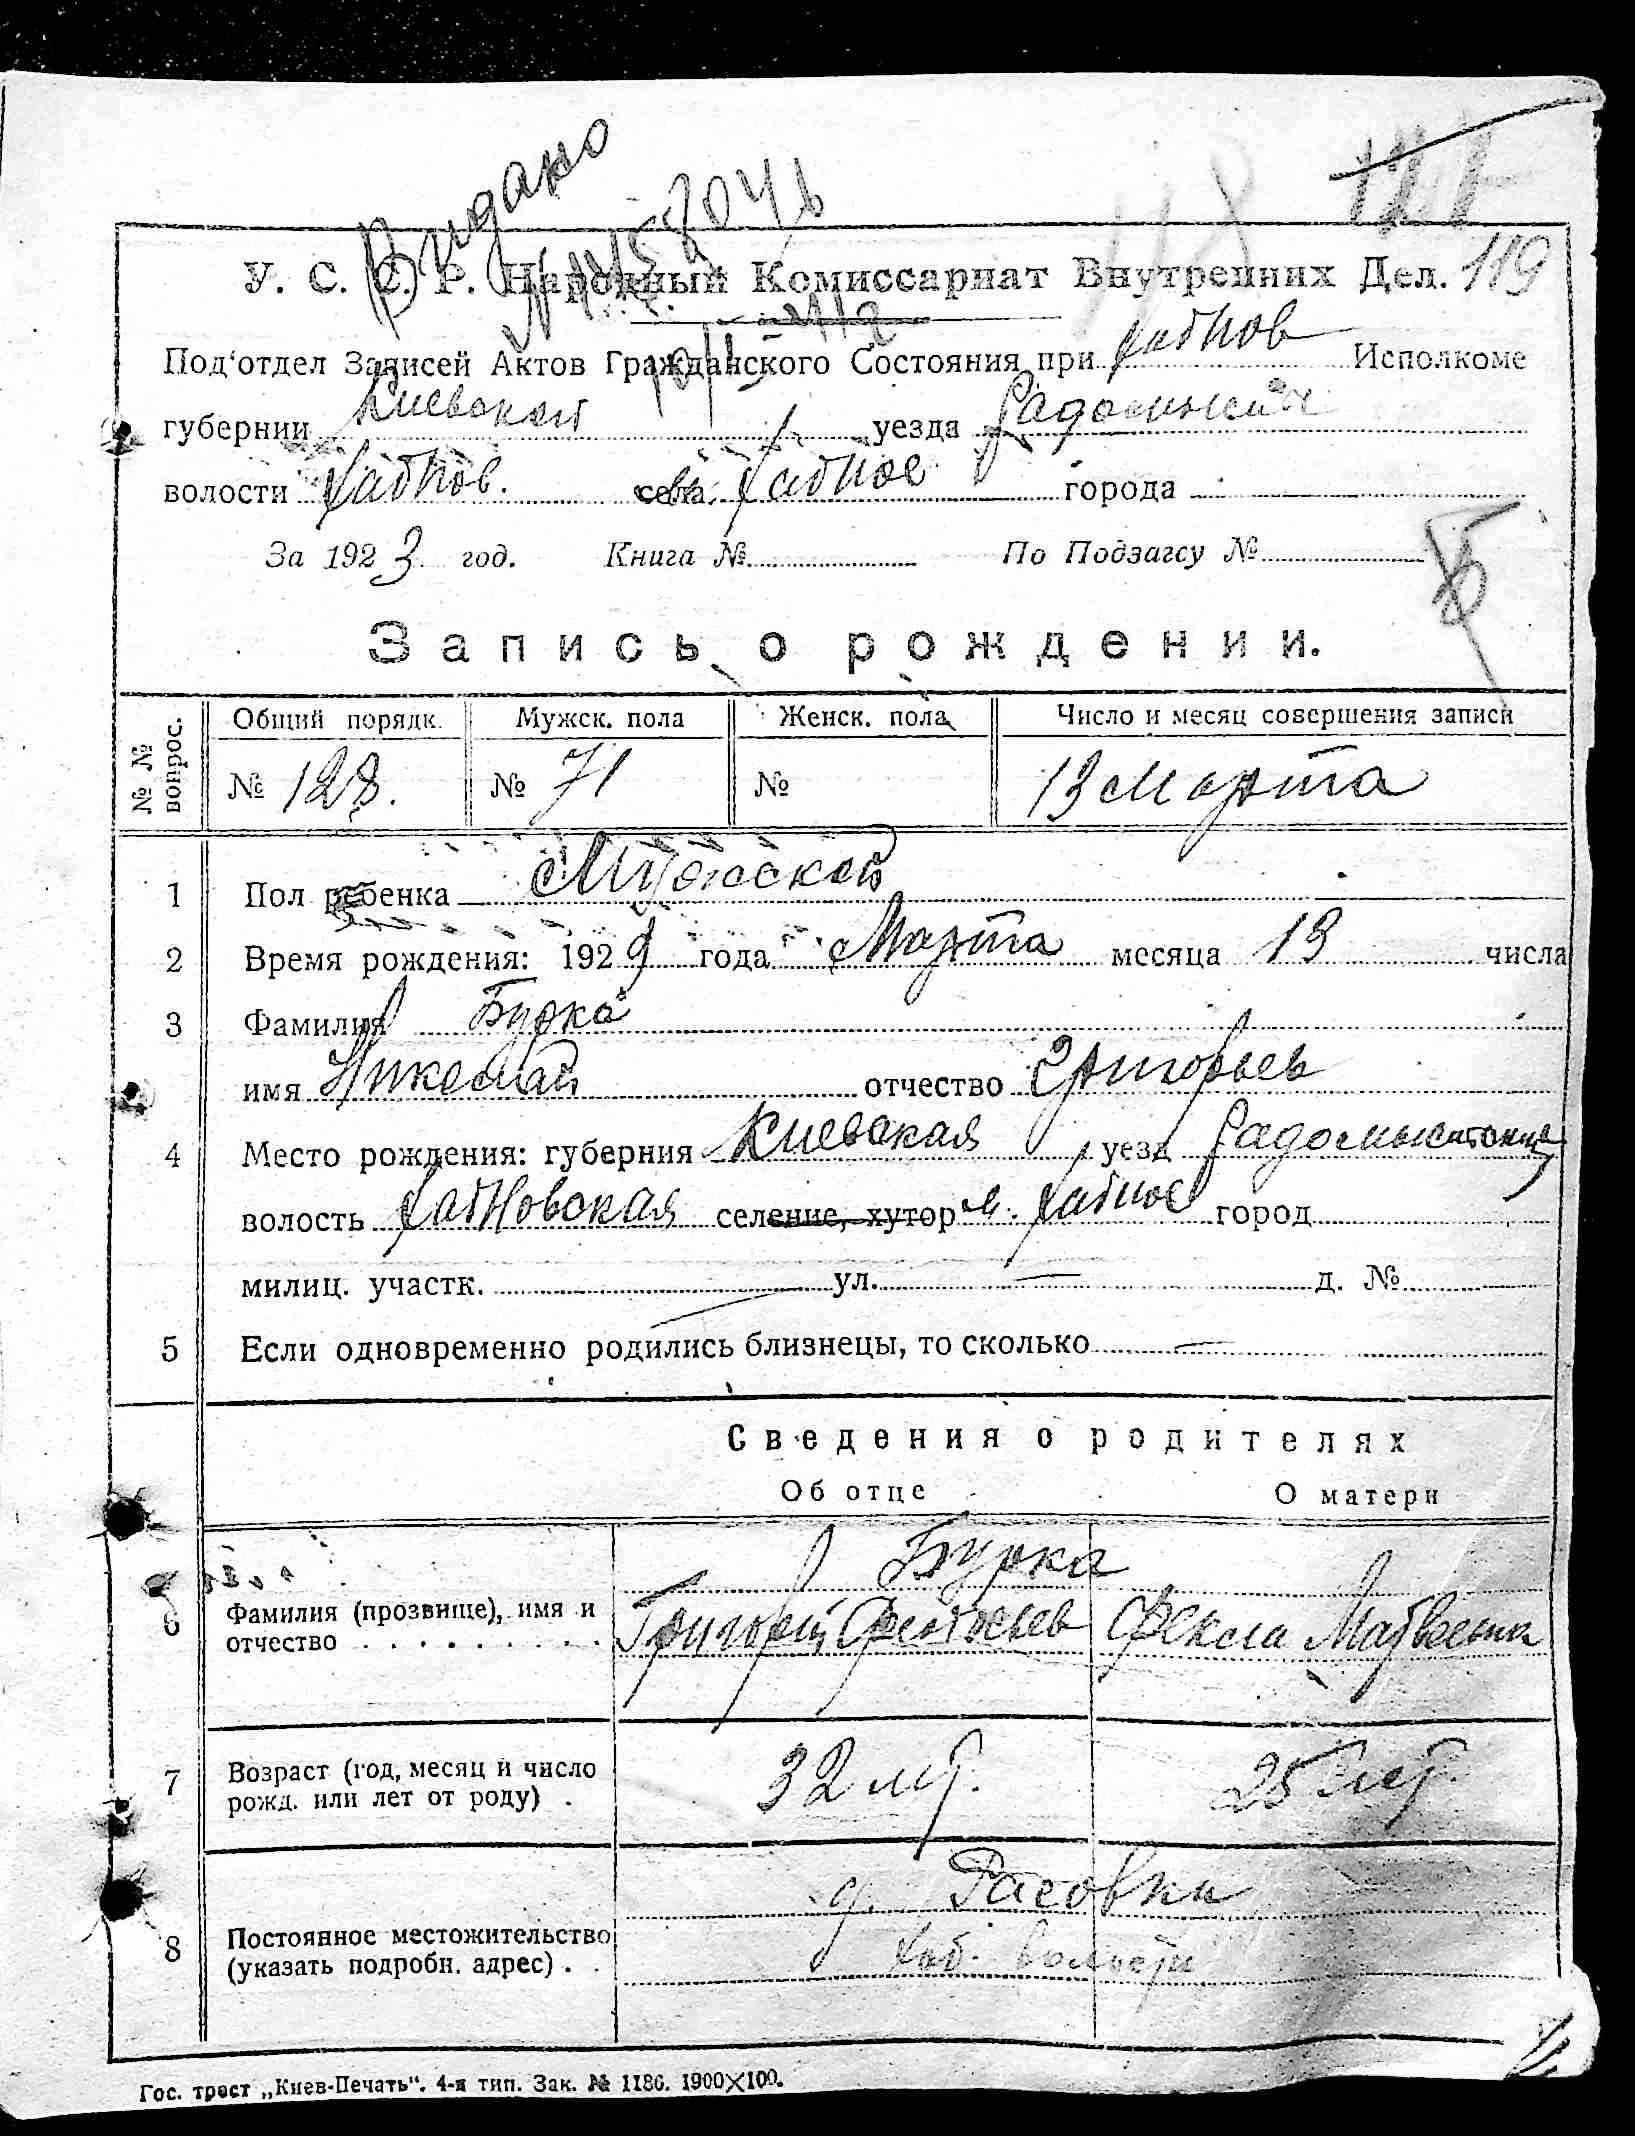 121
118
Видано
У. С. С. Р. Народный Комиссариат Внутренних Дел. 119
Под'отдел Записей Актов Гражданского Состояния при Хабнов Исполкоме
губернии Киевской уезда
волости Хабнов. села м. Хабное города
За 1923 год. Книга № По Подзагсу №
Запись о рождении.
№ № вопрос. Общий порядк. Мужск. пола Женск. пола Число и месяц совершения записи
№ 128. № 71 № 13 Марта
1 Пол ребенка Мужской
2 Время рождения: 192 года Марта месяца 13 числа
3 Фамилия Бурка
имя Николай отчество Григорьев
4 Место рождения: губерния Киевская уезд Радомысльский
волость Хабновская селение, хутор м. Хабное город
милиц. участк. — ул. — д. №
5 Если одновременно родились близнецы, то сколько —
Сведения о родителях
Об отце О матери
Бурка
6 Фамилия (прозвище), имя и
отчество Григорий Фекла Матвеевна
7 Возраст (год, месяц и число
рожд. или лет от роду) . 32 лет. 25 лет.
д. Расовки
8 Постоянное местожительство
(указать подробн. адрес) . . Хаб. волости
Гос. трест „Киев-Печать". 4-я тип. Зак. № 1186. 1900×100.